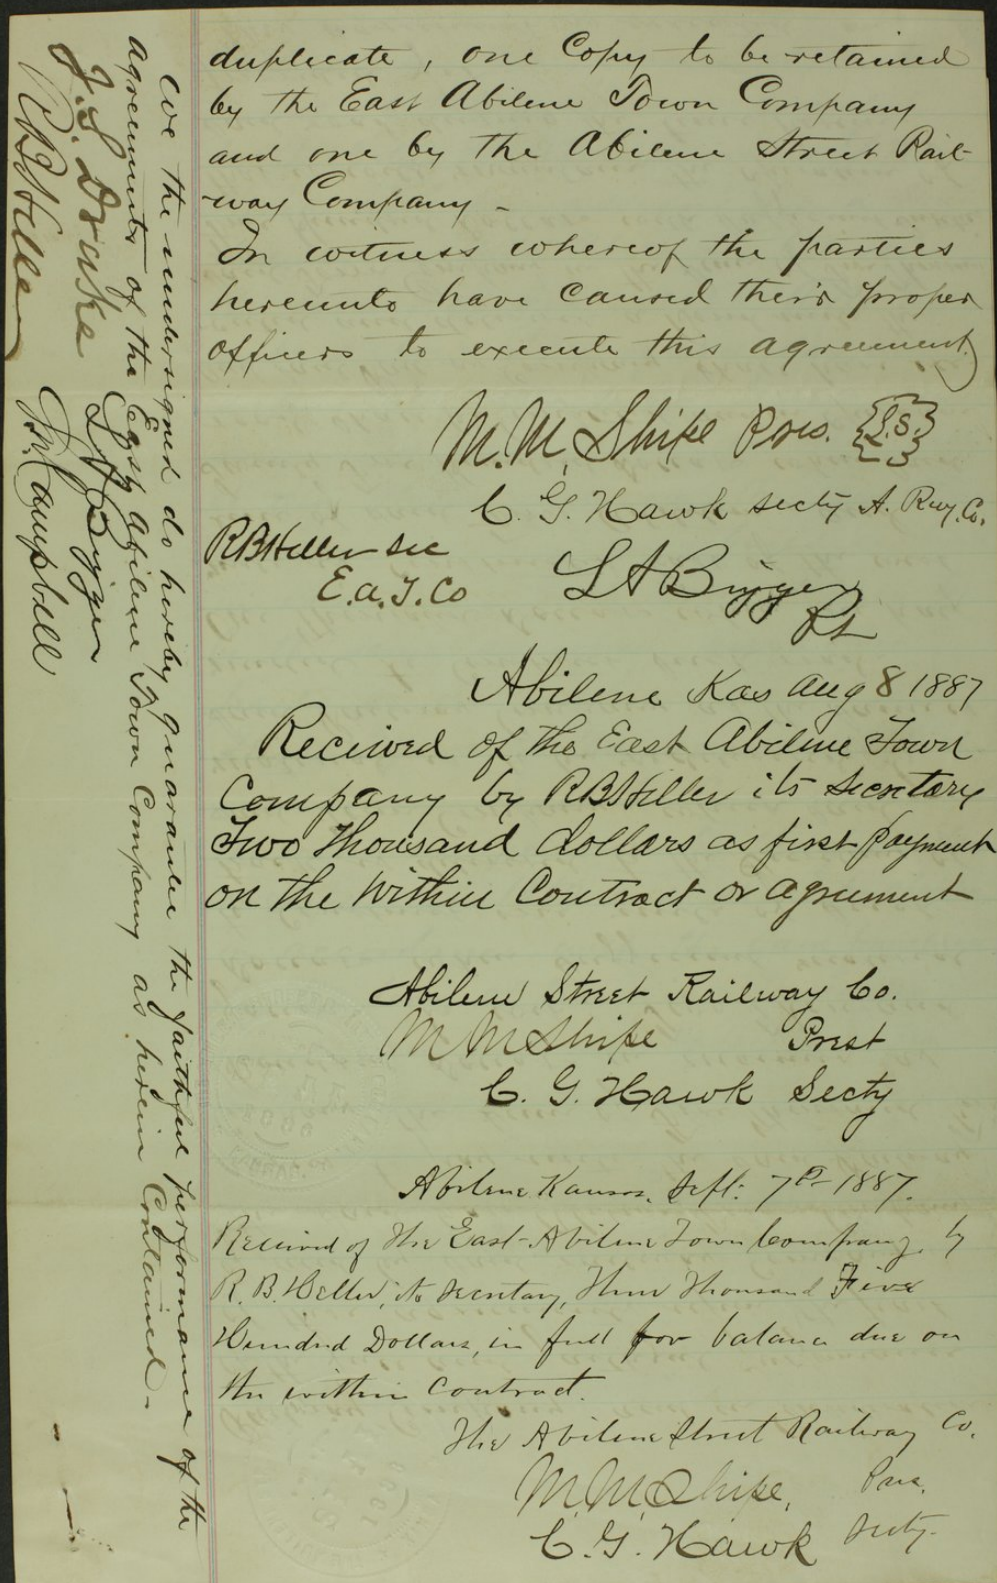 duplicate, one Copy to be retained
by the East Abilene Town Company
and one by the Abilene Street Rail-
way Company -
In witness whereof the parties
hereunto have caused their proper
officers to execute this agreement
M. M. Shipe Pres. {L.S.}
C. G. Hawk Secty A. Rwy. Co.
R B Heller Sec
E. A. T. Co
L A Bigger
Pt
Abilene Kas Aug 8 1887
Received of the East Abilene Town
Company by R B Heller its Secretary
Two thousand dollars as first payment
on the within Contract or agreement
Abilene Street Railway Co.
M M Shipe Prest
C. G. Hawk Secty
Abilene Kansas, Sept: 7th 1887.
Received of The East-Abilene Town Company, by
R. B. Heller, its Secretary, Three Thousand Five
Hundred Dollars, in full for balance due on
the within Contract.
The Abilene Street Railway Co.
M. M. Shipe, Pres.
C. G. Hawk Secty.
We the undersigned do hereby guarantee the faithful performance of the
agreements of the East Abilene Town Company as herein Contained -
J. S. Drake L A Bigger
R B Heller Campbell